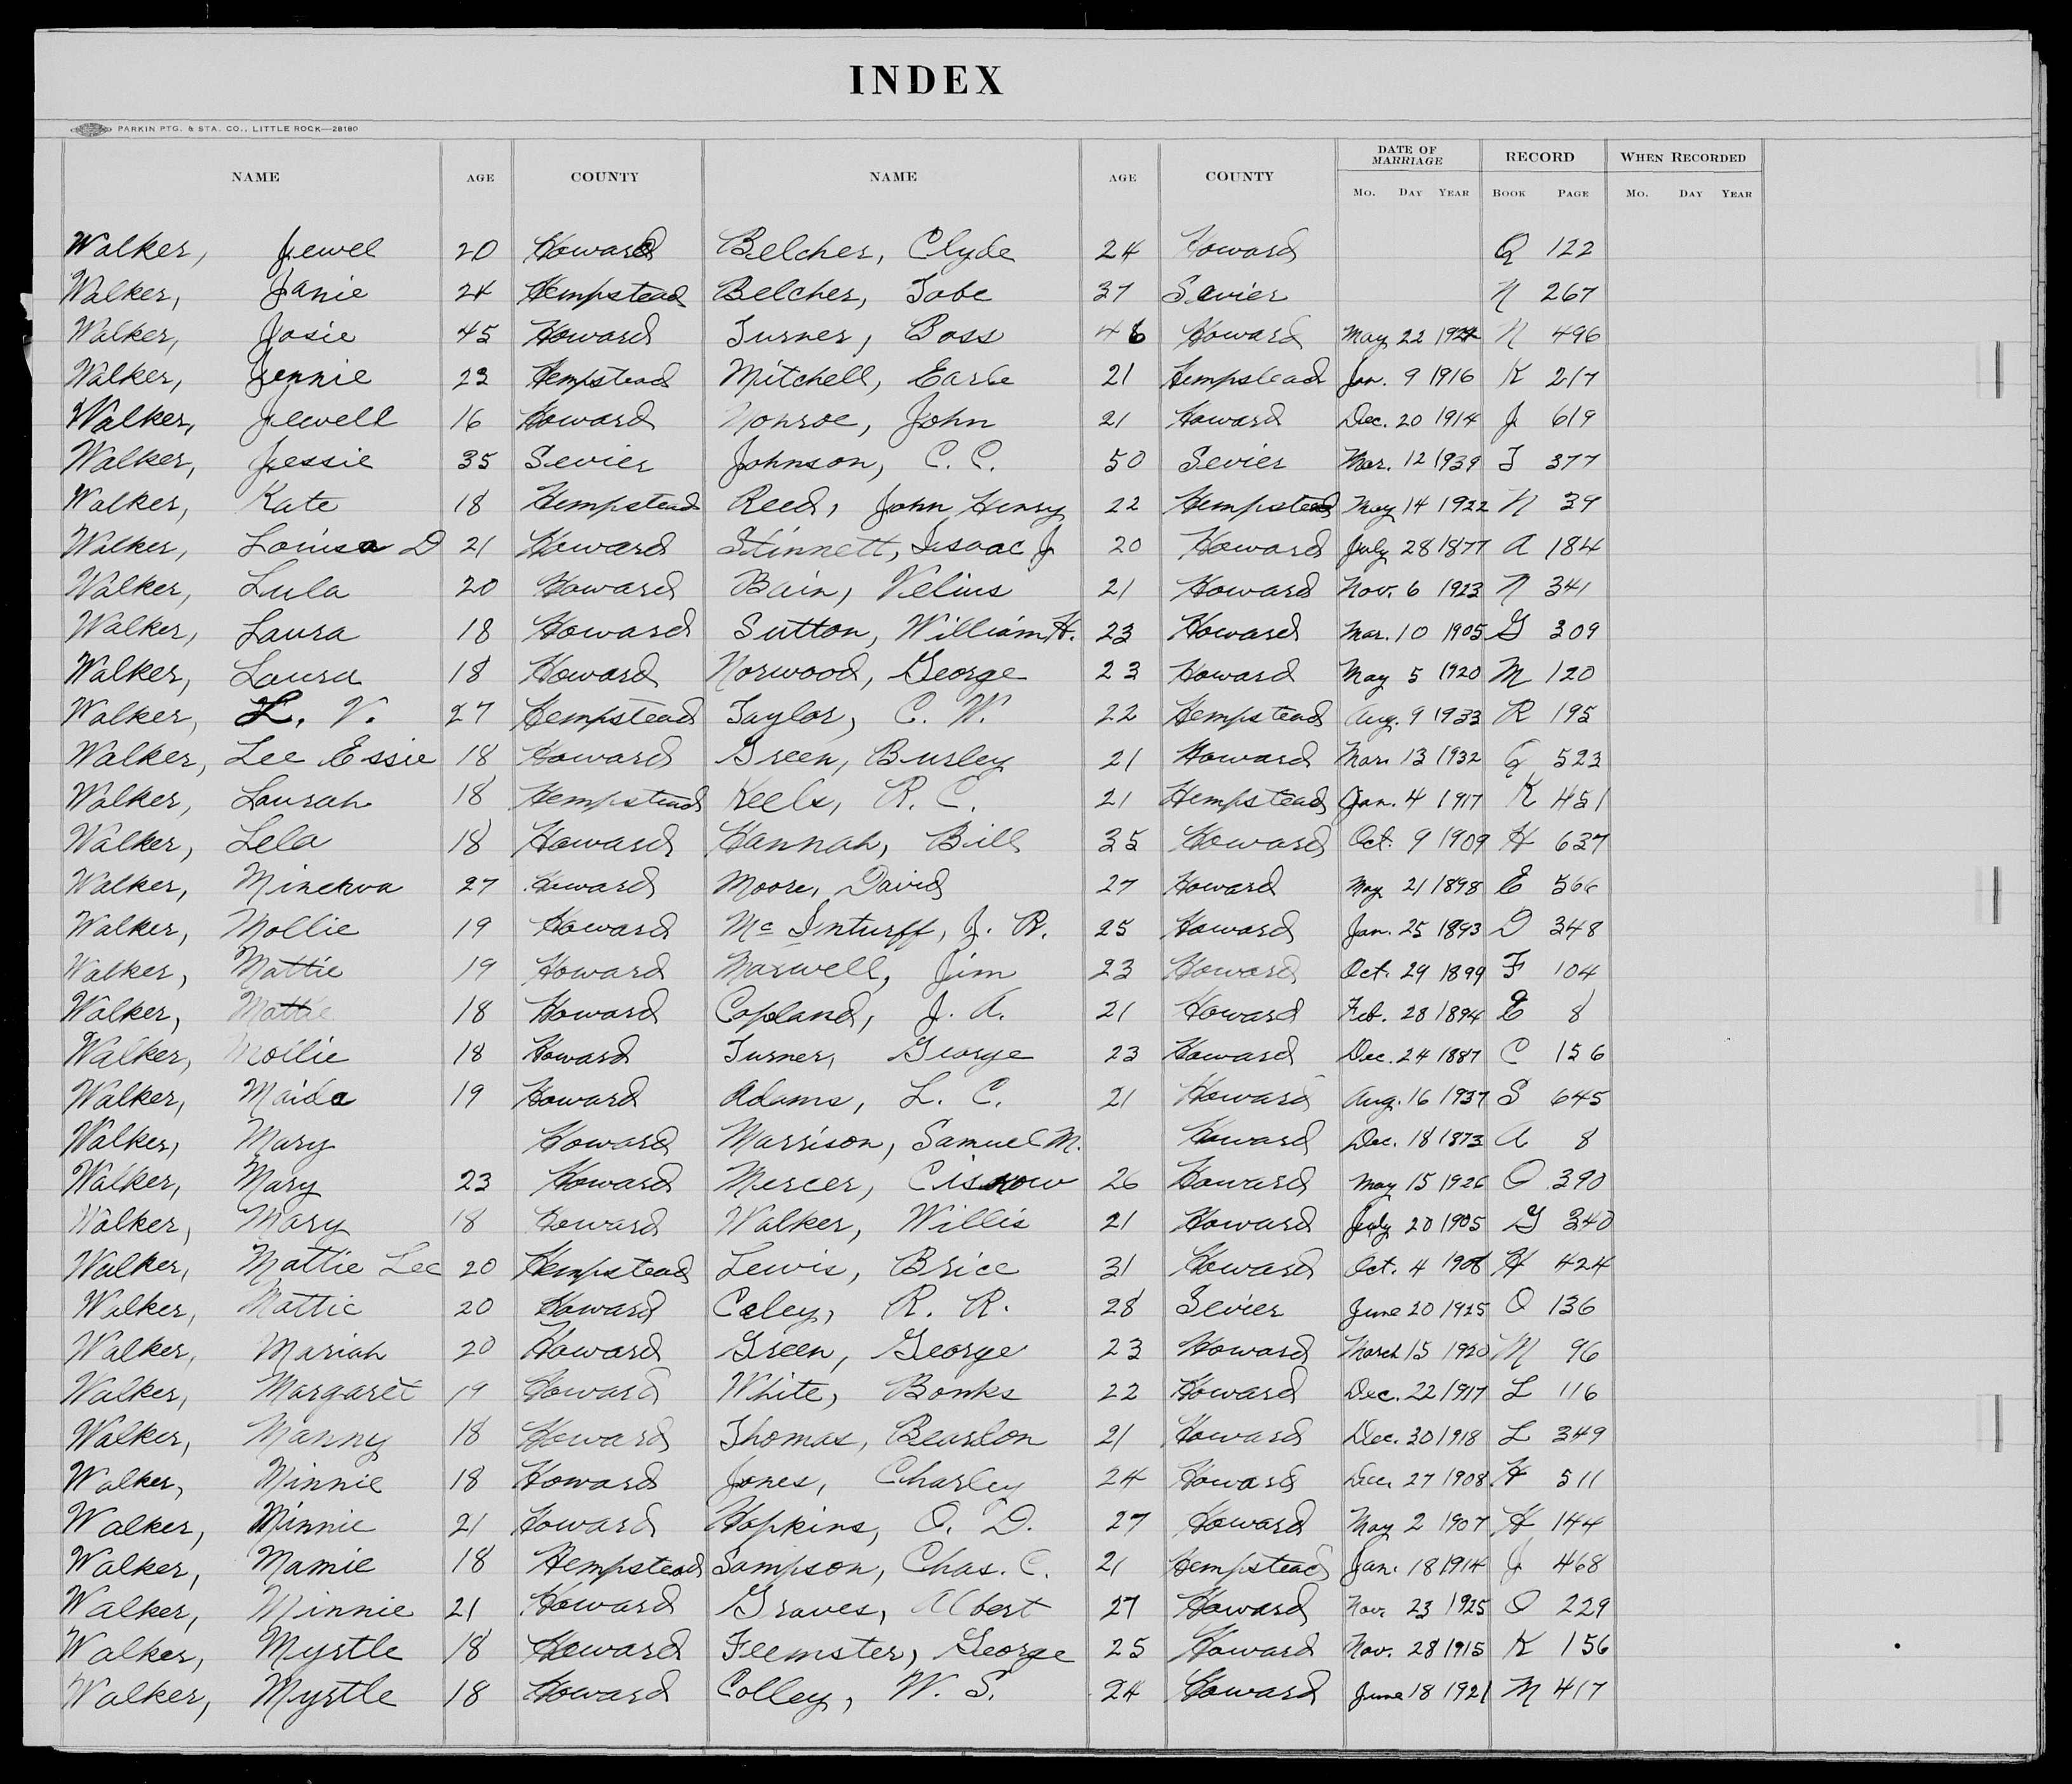 INDEX
PARKIN PTG. & STA. CO., LITTLE ROCK—28180
NAME AGE COUNTY NAME AGE COUNTY DATE OF MARRIAGE RECORD WHEN RECORDED
MO. DAY YEAR BOOK PAGE MO. DAY YEAR
Walker, Jewel 20 Howard Belcher, Clyde 24 Howard Q 122
Walker, Janie 24 Hempstead Belcher, Tobe 37 Sevier N 267
Walker, Josie 45 Howard Turner, Boss 46 Howard May 22 1924 N 496
Walker, Jennie 23 Hempstead Mitchell, Earle 21 Hempstead Jan. 9 1916 K 217
Walker, Jewell 16 Howard Monroe, John 21 Howard Dec. 20 1914 J 619
Walker, Jessie 35 Sevier Johnson, C. C. 50 Sevier Mar. 12 1939 T 377
Walker, Kate 18 Hempstead Reed, John Henry 22 Hempstead May 14 1922 N 39
Walker, Louisa D 21 Howard Stinnett, Isaac J 20 Howard July 28 1877 A 184
Walker, Lula 20 Howard Bain, Velius 21 Howard Nov. 6 1923 N 341
Walker, Laura 18 Howard Sutton, William H. 23 Howard Mar. 10 1905 G 309
Walker, Laura 18 Howard Norwood, George 23 Howard May 5 1920 M 120
Walker, L. V. 27 Hempstead Taylor, C. W. 22 Hempstead Aug. 9 1933 R 195
Walker, Lee Essie 18 Howard Green, Burley 21 Howard Mar. 13 1932 Q 523
Walker, Laurah 18 Hempstead Keels, R. C. 21 Hempstead Jan. 4 1917 K 451
Walker, Lela 18 Howard Hannah, Bill 35 Howard Oct. 9 1909 H 637
Walker, Minerva 27 Howard Moore, David 27 Howard May 21 1898 E 566
Walker, Mollie 19 Howard Mc Inturff, J. R. 25 Howard Jan. 25 1893 D 348
Walker, Mattie 19 Howard Maxwell, Jim 23 Howard Oct. 29 1899 F 104
Walker, Mattie 18 Howard Copland, J. A. 21 Howard Feb. 28 1894 E 8
Walker, Mollie 18 Howard Turner, George 23 Howard Dec. 24 1887 C 156
Walker, Maida 19 Howard Adams, L. C. 21 Howard Aug. 16 1937 S 645
Walker, Mary Howard Marrison, Samuel M. Howard Dec. 18 1873 A 8
Walker, Mary 23 Howard Mercer, Cisrow 26 Howard May 15 1926 O 390
Walker, Mary 18 Howard Walker, Willis 21 Howard July 20 1905 G 340
Walker, Mattie Lee 20 Hempstead Lewis, Brice 31 Howard Oct. 4 1908 H 424
Walker, Mattie 20 Howard Coley, R. R. 28 Sevier June 20 1925 O 136
Walker, Mariah 20 Howard Green, George 23 Howard March 15 1920 M 96
Walker, Margaret 19 Howard White, Bonks 22 Howard Dec. 22 1917 L 116
Walker, Manny 18 Howard Thomas, Bearlon 21 Howard Dec. 30 1918 L 349
Walker, Minnie 18 Howard Jones, Charley 24 Howard Dec. 27 1908 H 511
Walker, Minnie 21 Howard Hopkins, O. D. 27 Howard May 2 1907 H 144
Walker, Mamie 18 Hempstead Sampson, Chas. C. 21 Hempstead Jan. 18 1914 J 468
Walker, Minnie 21 Howard Graves, Albert 27 Howard Nov. 23 1925 O 229
Walker, Myrtle 18 Howard Feemster, George 25 Howard Nov. 28 1915 K 156
Walker, Myrtle 18 Howard Colley, W. S. 24 Howard June 18 1921 M 417